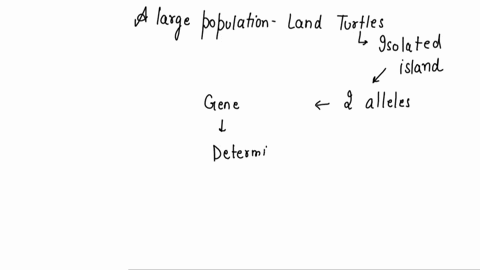 A large population - Land Turtles
↳ Isolated
island
Gene ← 2 alleles
↓
Determi